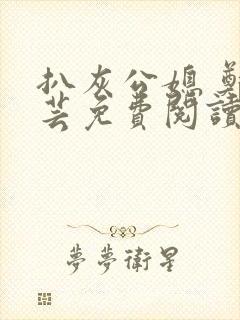 扒灰公媳 鄭
芸免費閱讀
夢夢衛星